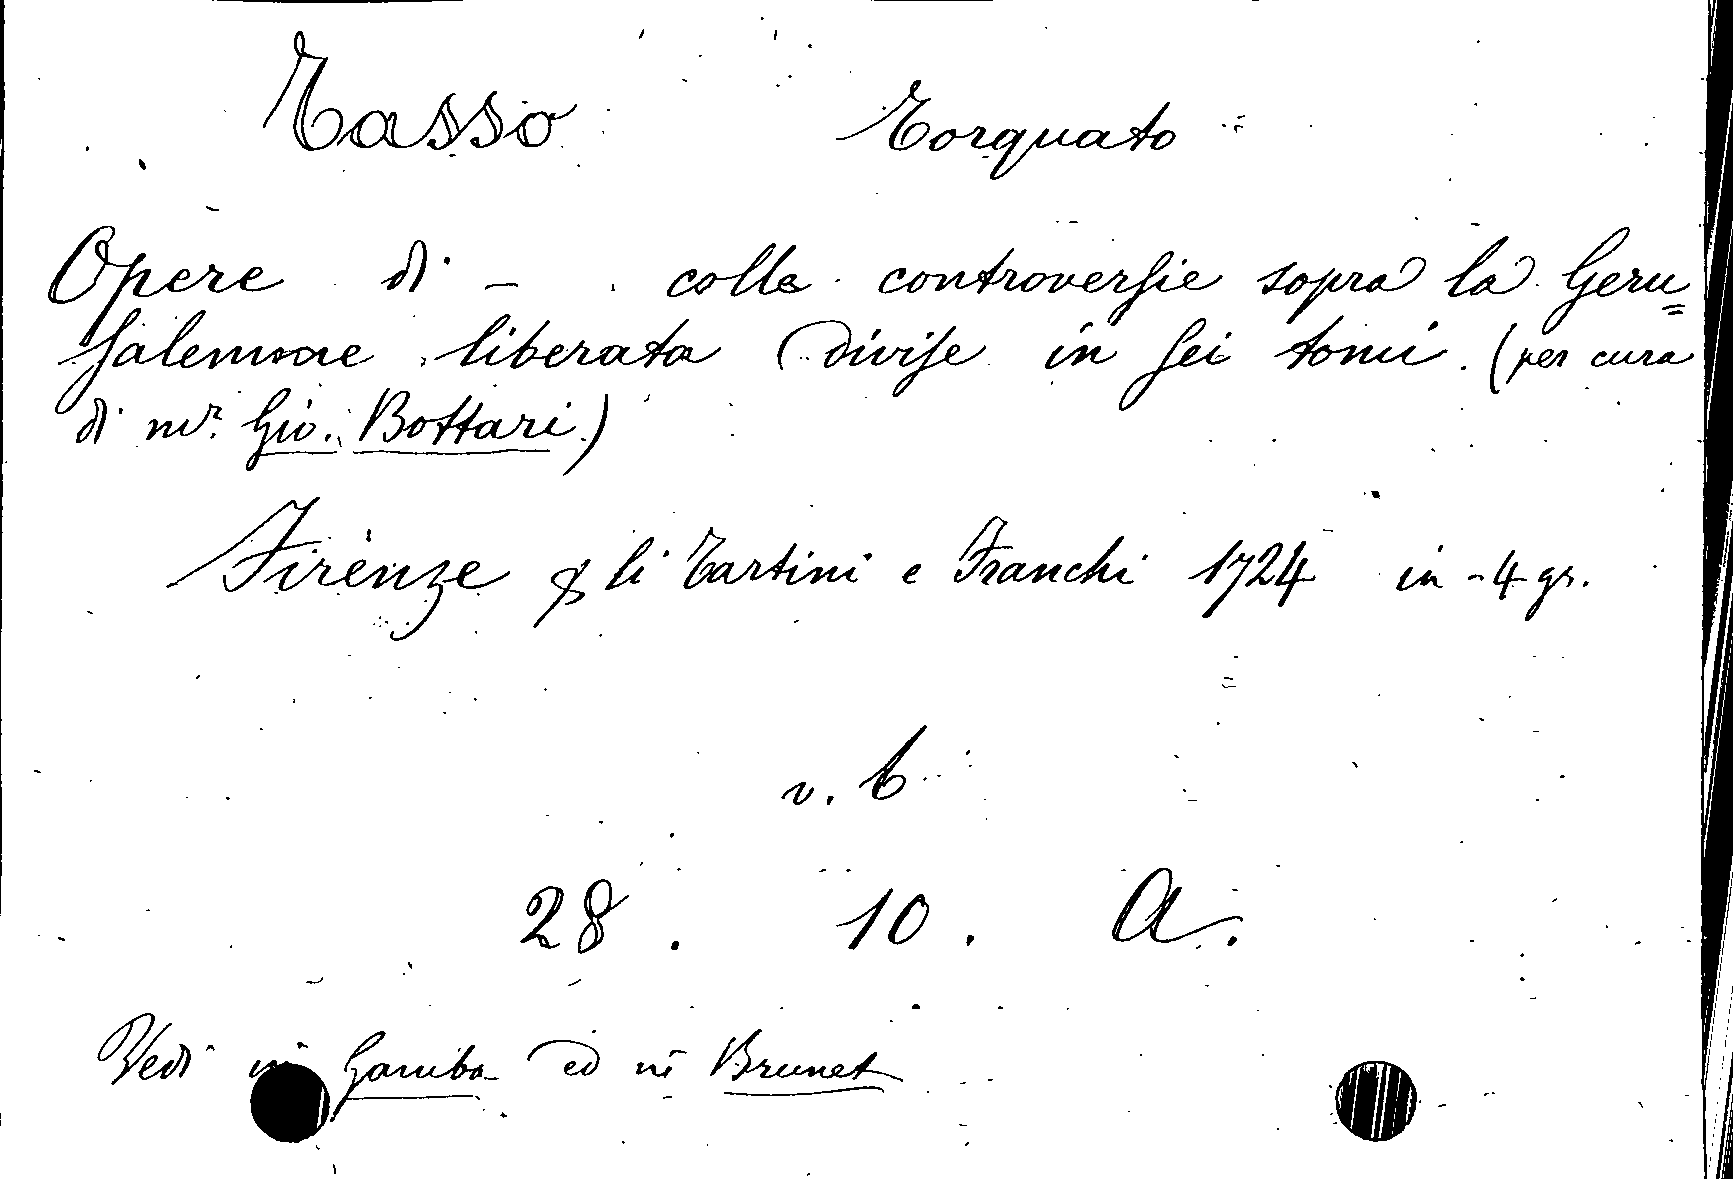 Tasso Torquato
Opere di – colle controversie sopra la Geru=
salemme liberata divise in sei tomi. (per cura
di mr. Gio. Bottari)
Firenze p li Tartini e Franchi 1724 in-4 gr.
v. 6
28. 10. A.
Vedi in Gamba ed in Brunet